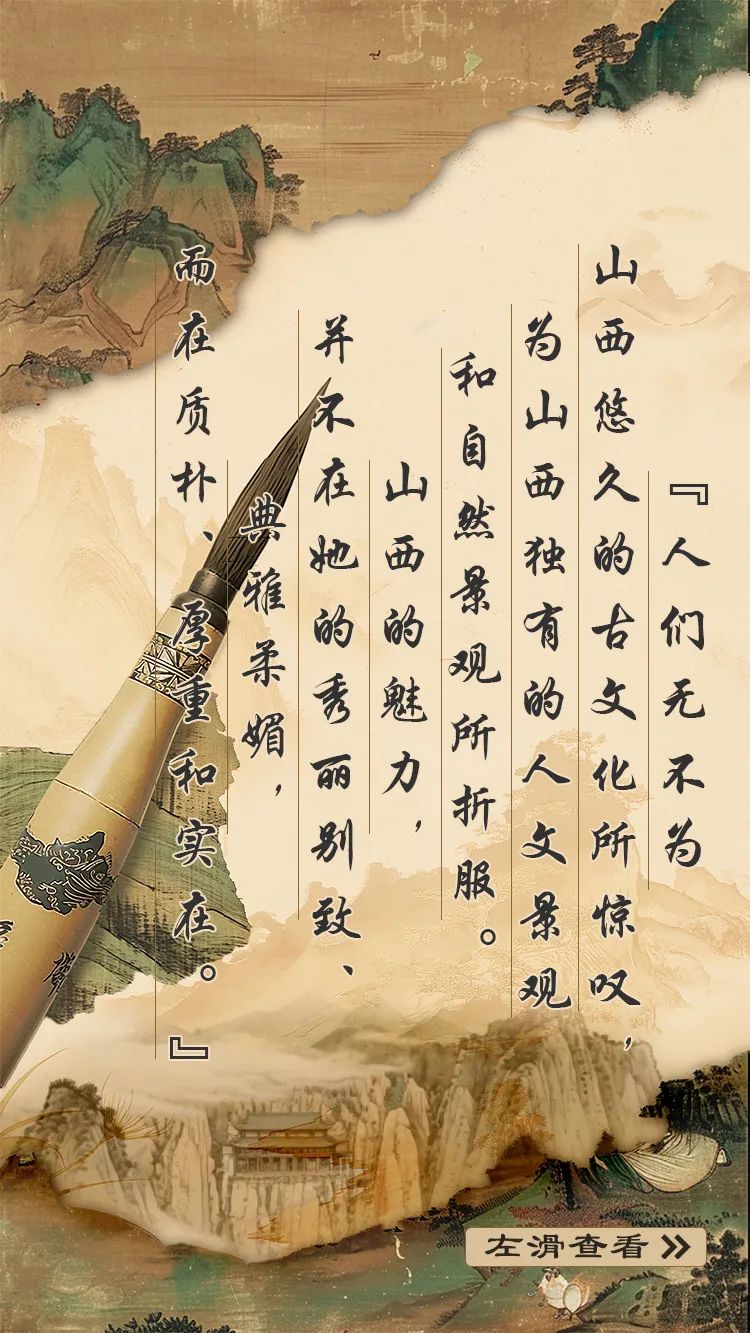 『人们无不为
山西悠久的古文化所惊叹，
为山西独有的人文景观
和自然景观所折服。
山西的魅力，
并不在她的秀丽别致、
典雅柔媚，
而在质朴、厚重和实在。』
左滑查看